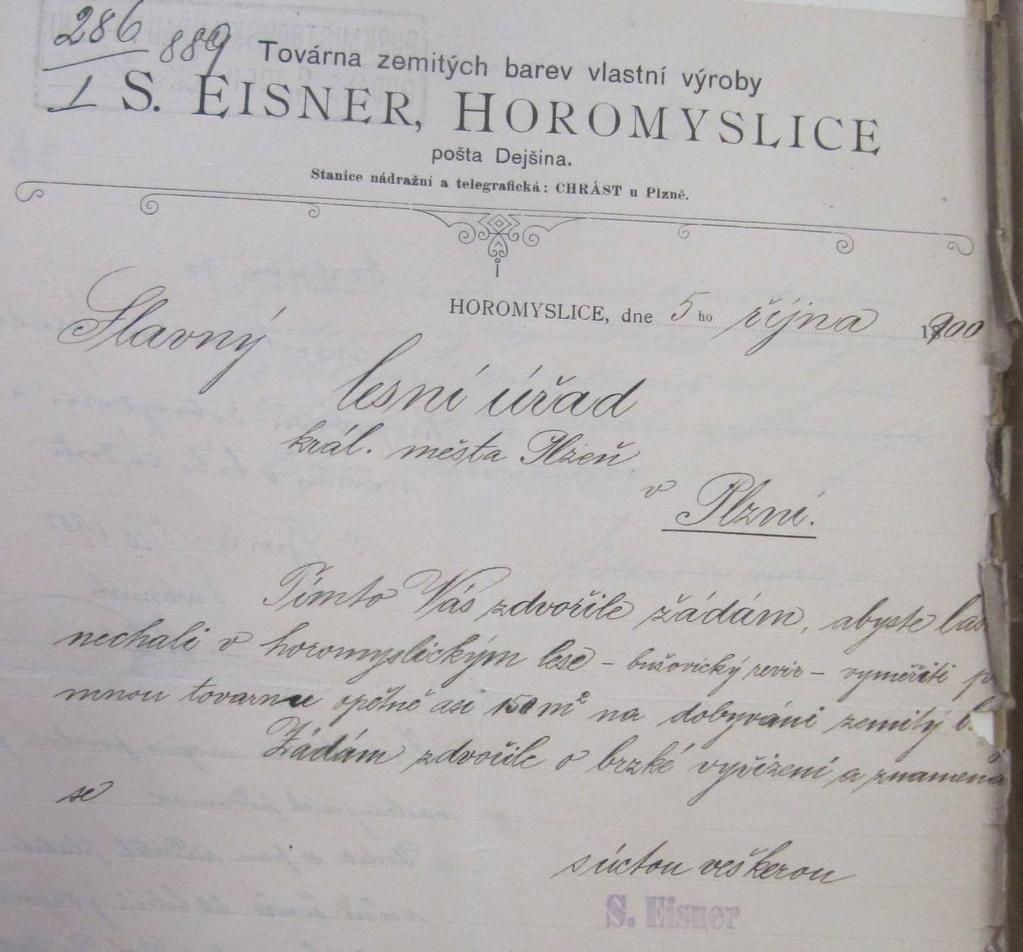 286 889
1
Továrna zemitých barev vlastní výroby
S. EISNER, HOROMYSLICE
pošta Dejšina.
Stanice nádražní a telegrafická: CHRÁST u Plzně.
HOROMYSLICE, dne 5 ho října 1900
Slavný
lesní úřad
král. města Plzeň
v
Plzni.
Tímto Vás zdvořile žádám, abyste
nechali v horomyslickým lese – bušovický revír – vyměřiti
mnou tovarnu opětně asi 150 m² na dobyváni zemitý
Žádám zdvořile o brzké vyřízení a znamená
se
súctou veškerou
S. Eisner